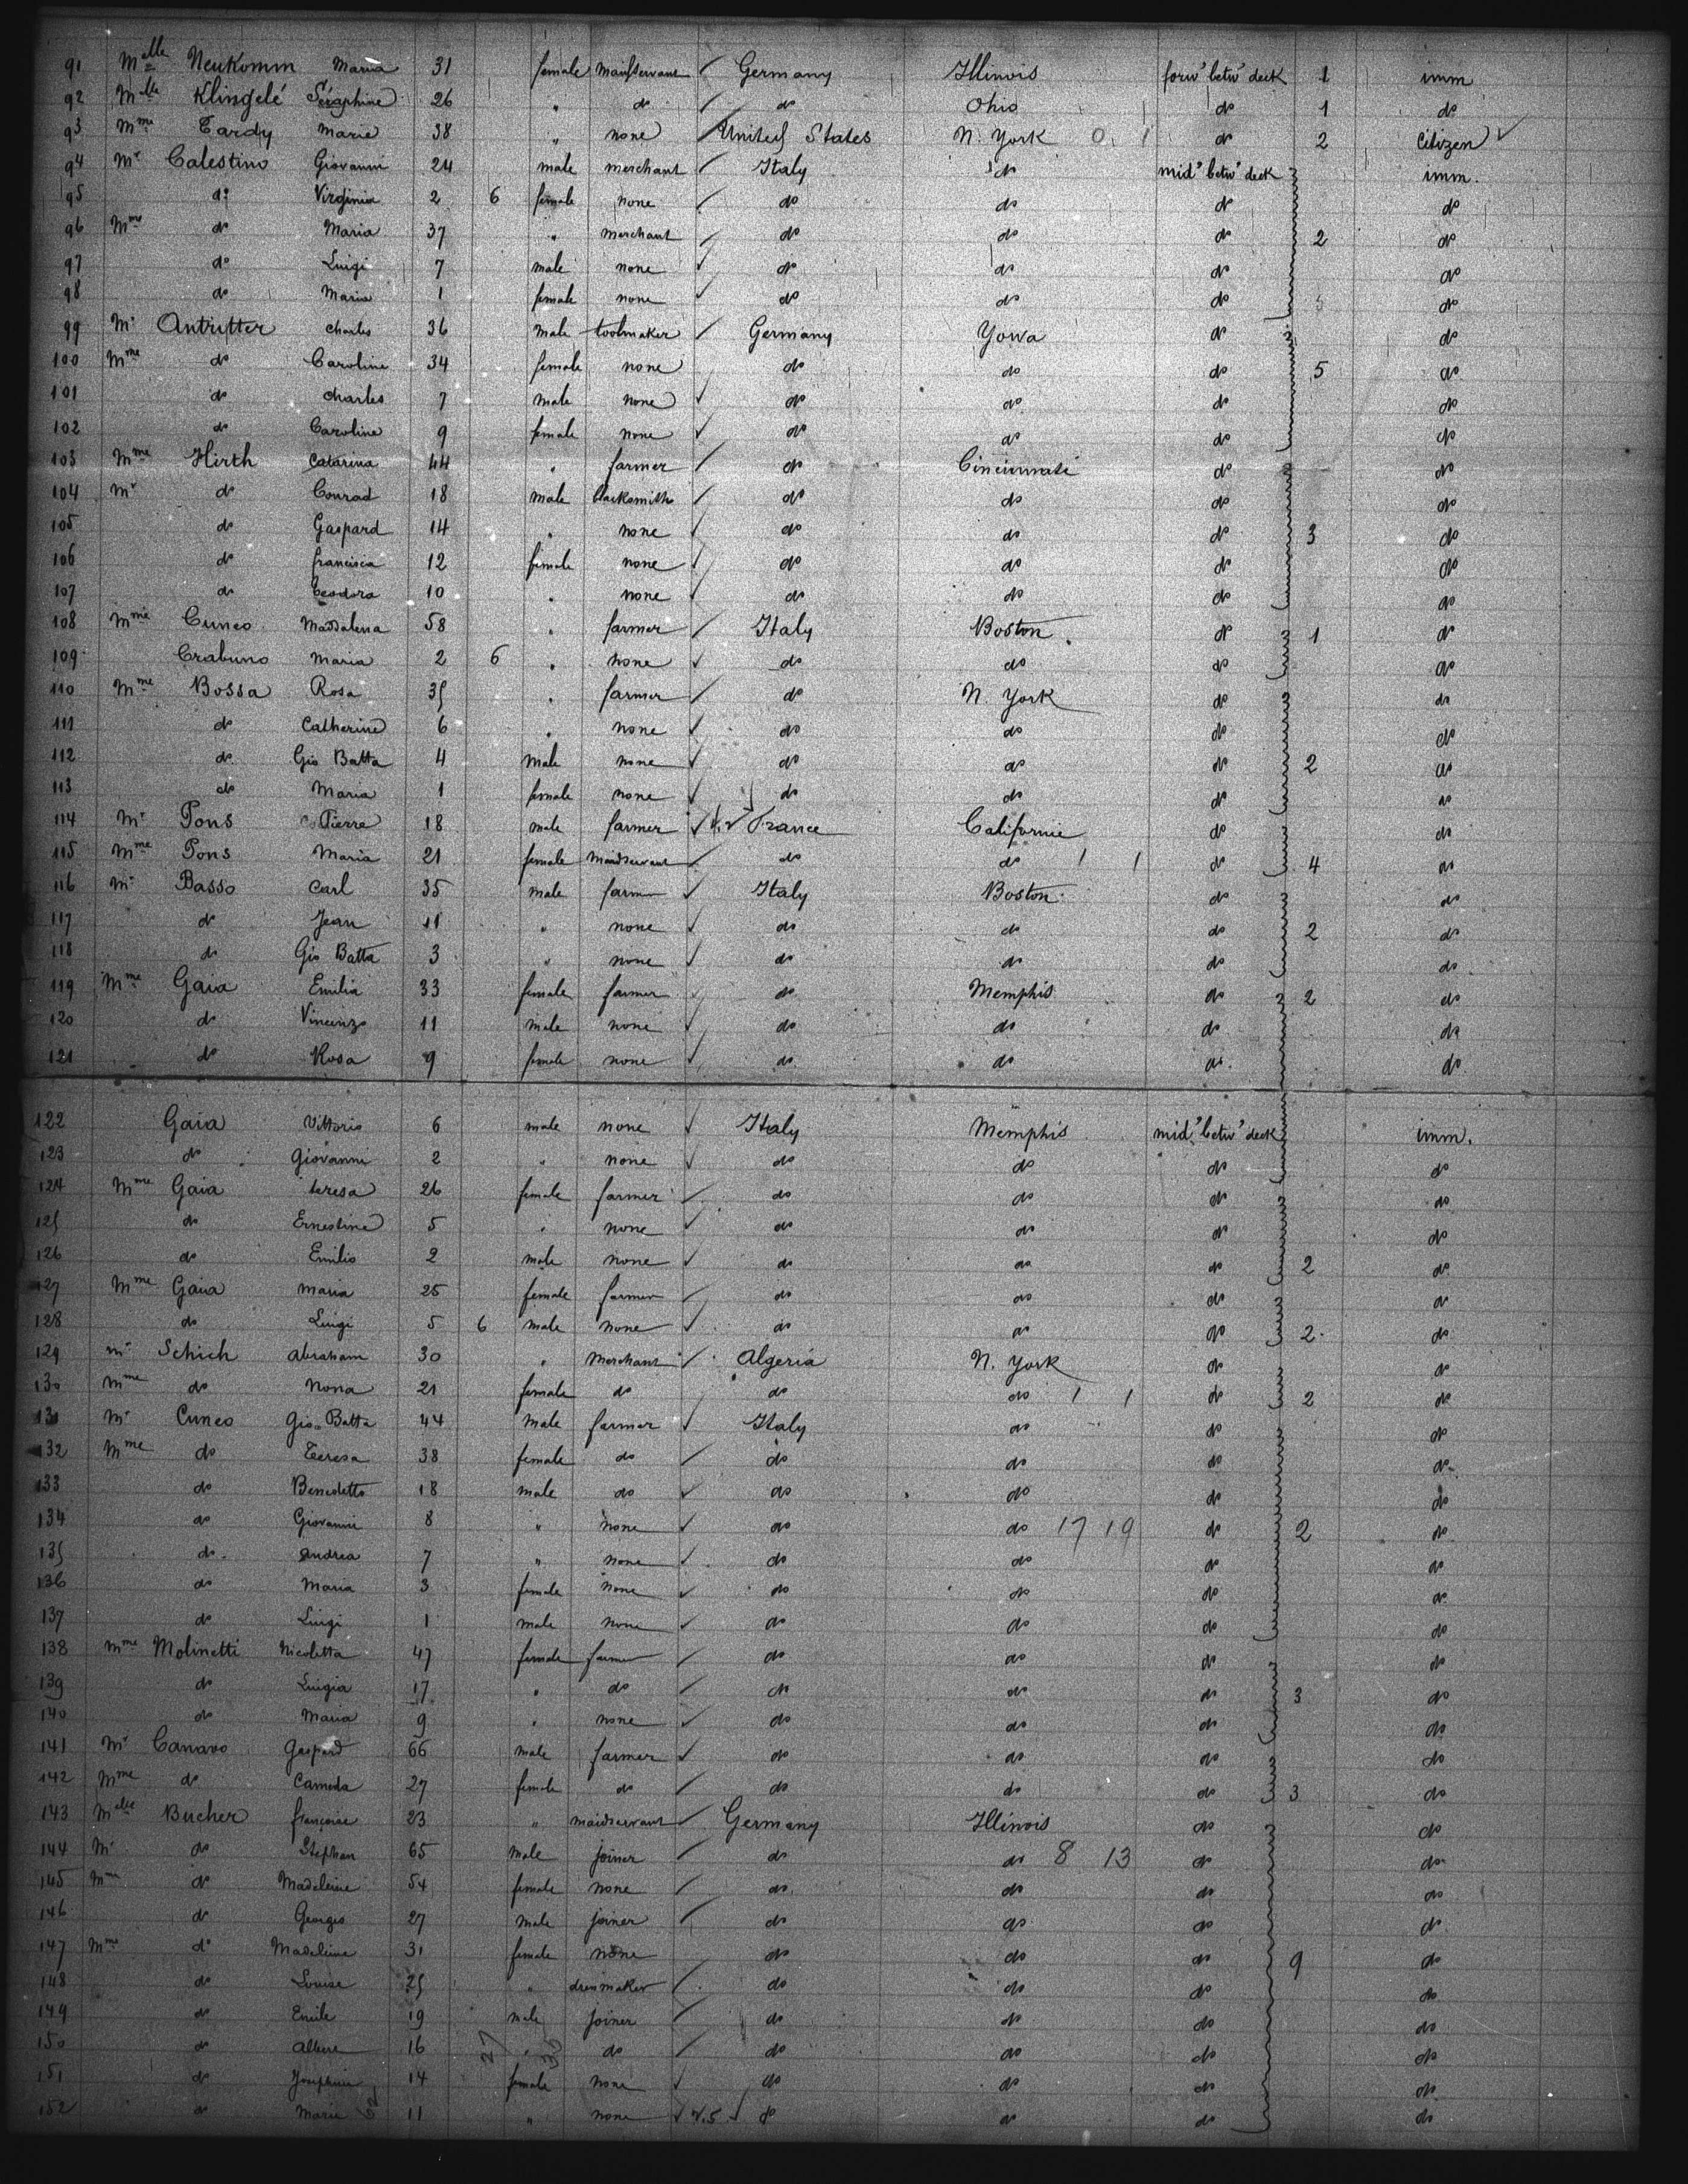 91 Melle Neukomm Maria 31 female maidservant / Germany Illinois forw' betw' deck 1 imm
92 Melle Klingelé Séraphine 26 " do / do Ohio do 1 do
93 Mme Tardy Marie 38 " none / United States N. York 0 1 do 2 Citizen ✓
94 Mr Calestino Giovanni 24 male merchant / Italy do mid' betw' deck imm.
95 do Virginia 2 6 female none / do do do do
96 Mme do Maria 37 " merchant / do do do 2 do
97 do Luigi 7 male none ✓ do do do do
98 do Maria 1 female none ✓ do do do do
99 Mr Antritter Charles 36 male toolmaker / Germany Yowa do do
100 Mme do Caroline 34 female none do do do 5 do
101 do Charles 7 male none ✓ do do do do
102 do Caroline 9 female none ✓ do do do do
103 Mme Hirth Catarina 44 " farmer / do Cincinnati do do
104 Mr do Conrad 18 male blacksmith / do do do do
105 do Gaspard 14 " none ✓ do do do 3 do
106 do francisca 12 female none ✓ do do do do
107 do Teodora 10 " none ✓ do do do do
108 Mme Cuneo Maddalena 58 " farmer / Italy Boston do 1 do
109 Crabuno Maria 2 6 " none ✓ do do do do
110 Mme Bossa Rosa 35 " farmer / do N. York do do
111 do Catherine 6 " none ✓ do do do do
112 do Gio Batta 4 male none ✓ do do do 2 do
113 do Maria 1 female none ✓ do do do do
114 Mr Pons Pierre 18 male farmer ✓ France Californie do do
115 Mme Pons Maria 21 female maidservant / do do 1 1 do 4 do
116 Mr Basso Carl 35 male farmer ✓ Italy Boston do do
117 do Jean 11 " none ✓ do do do 2 do
118 do Gio Batta 3 " none ✓ do do do do
119 Mme Gaia Emilia 33 female farmer ✓ do Memphis do 2 do
120 do Vincenzo 11 male none ✓ do do do do
121 do Rosa 9 female none ✓ do do do do
122 Gaia Vittorio 6 male none ✓ Italy Memphis mid' betw' deck imm.
123 do Giovanni 2 " none ✓ do do do do
124 Mme Gaia teresa 26 female farmer / do do do do
125 do Ernestine 5 " none ✓ do do do do
126 do Emilio 2 male none ✓ do do do 2 do
127 Mme Gaia maria 25 female farmer / do do do do
128 do Luigi 5 6 male none ✓ do do do 2 do
129 Mr Schich abraham 30 " Merchant / Algeria N. York do do
130 Mme do Nona 21 female do / do do 1 1 do 2 do
131 Mr Cuneo Gio Batta 44 male farmer ✓ Italy do do do
132 Mme do Teresa 38 female do / do do do do
133 do Benedetto 18 male do ✓ do do do do
134 do Giovanni 8 " none ✓ do do 17 19 do 2 do
135 do andrea 7 " none ✓ do do do do
136 do Maria 3 female none ✓ do do do do
137 do Luigi 1 male none ✓ do do do do
138 Mme Molinetti Nicoletta 47 female farmer / do do do do
139 do Luigia 17 " do / do do do 3 do
140 do Maria 9 " none ✓ do do do do
141 Mr Canavo Gaspard 66 male farmer ✓ do do do do
142 Mme do 27 female do / do do do 3 do
143 Melle Bucher françoise 23 " maidservant / Germany Illinois do do
144 Mr do Stephan 65 male joiner / do do 8 13 do do
145 Mme do Madeleine 54 female none / do do do do
146 do Georges 27 male joiner / do do do do
147 Mme do Madeleine 31 female none do do do 9 do
148 do Louise 25 " dressmaker / do do do do
149 do Emile 19 male joiner / do do do do
150 do 16 " do / do do do do
151 do Josephine 14 female none ✓ do do do do
152 do Marie 11 " none ✓ do do do do